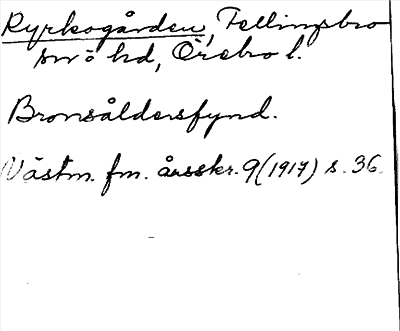 Kyrkogården, Fellingsbro
sn o hd, Örebro l.
Bronsåldersfynd.
Västm. fm. årsskr. 9 (1917) s. 36.